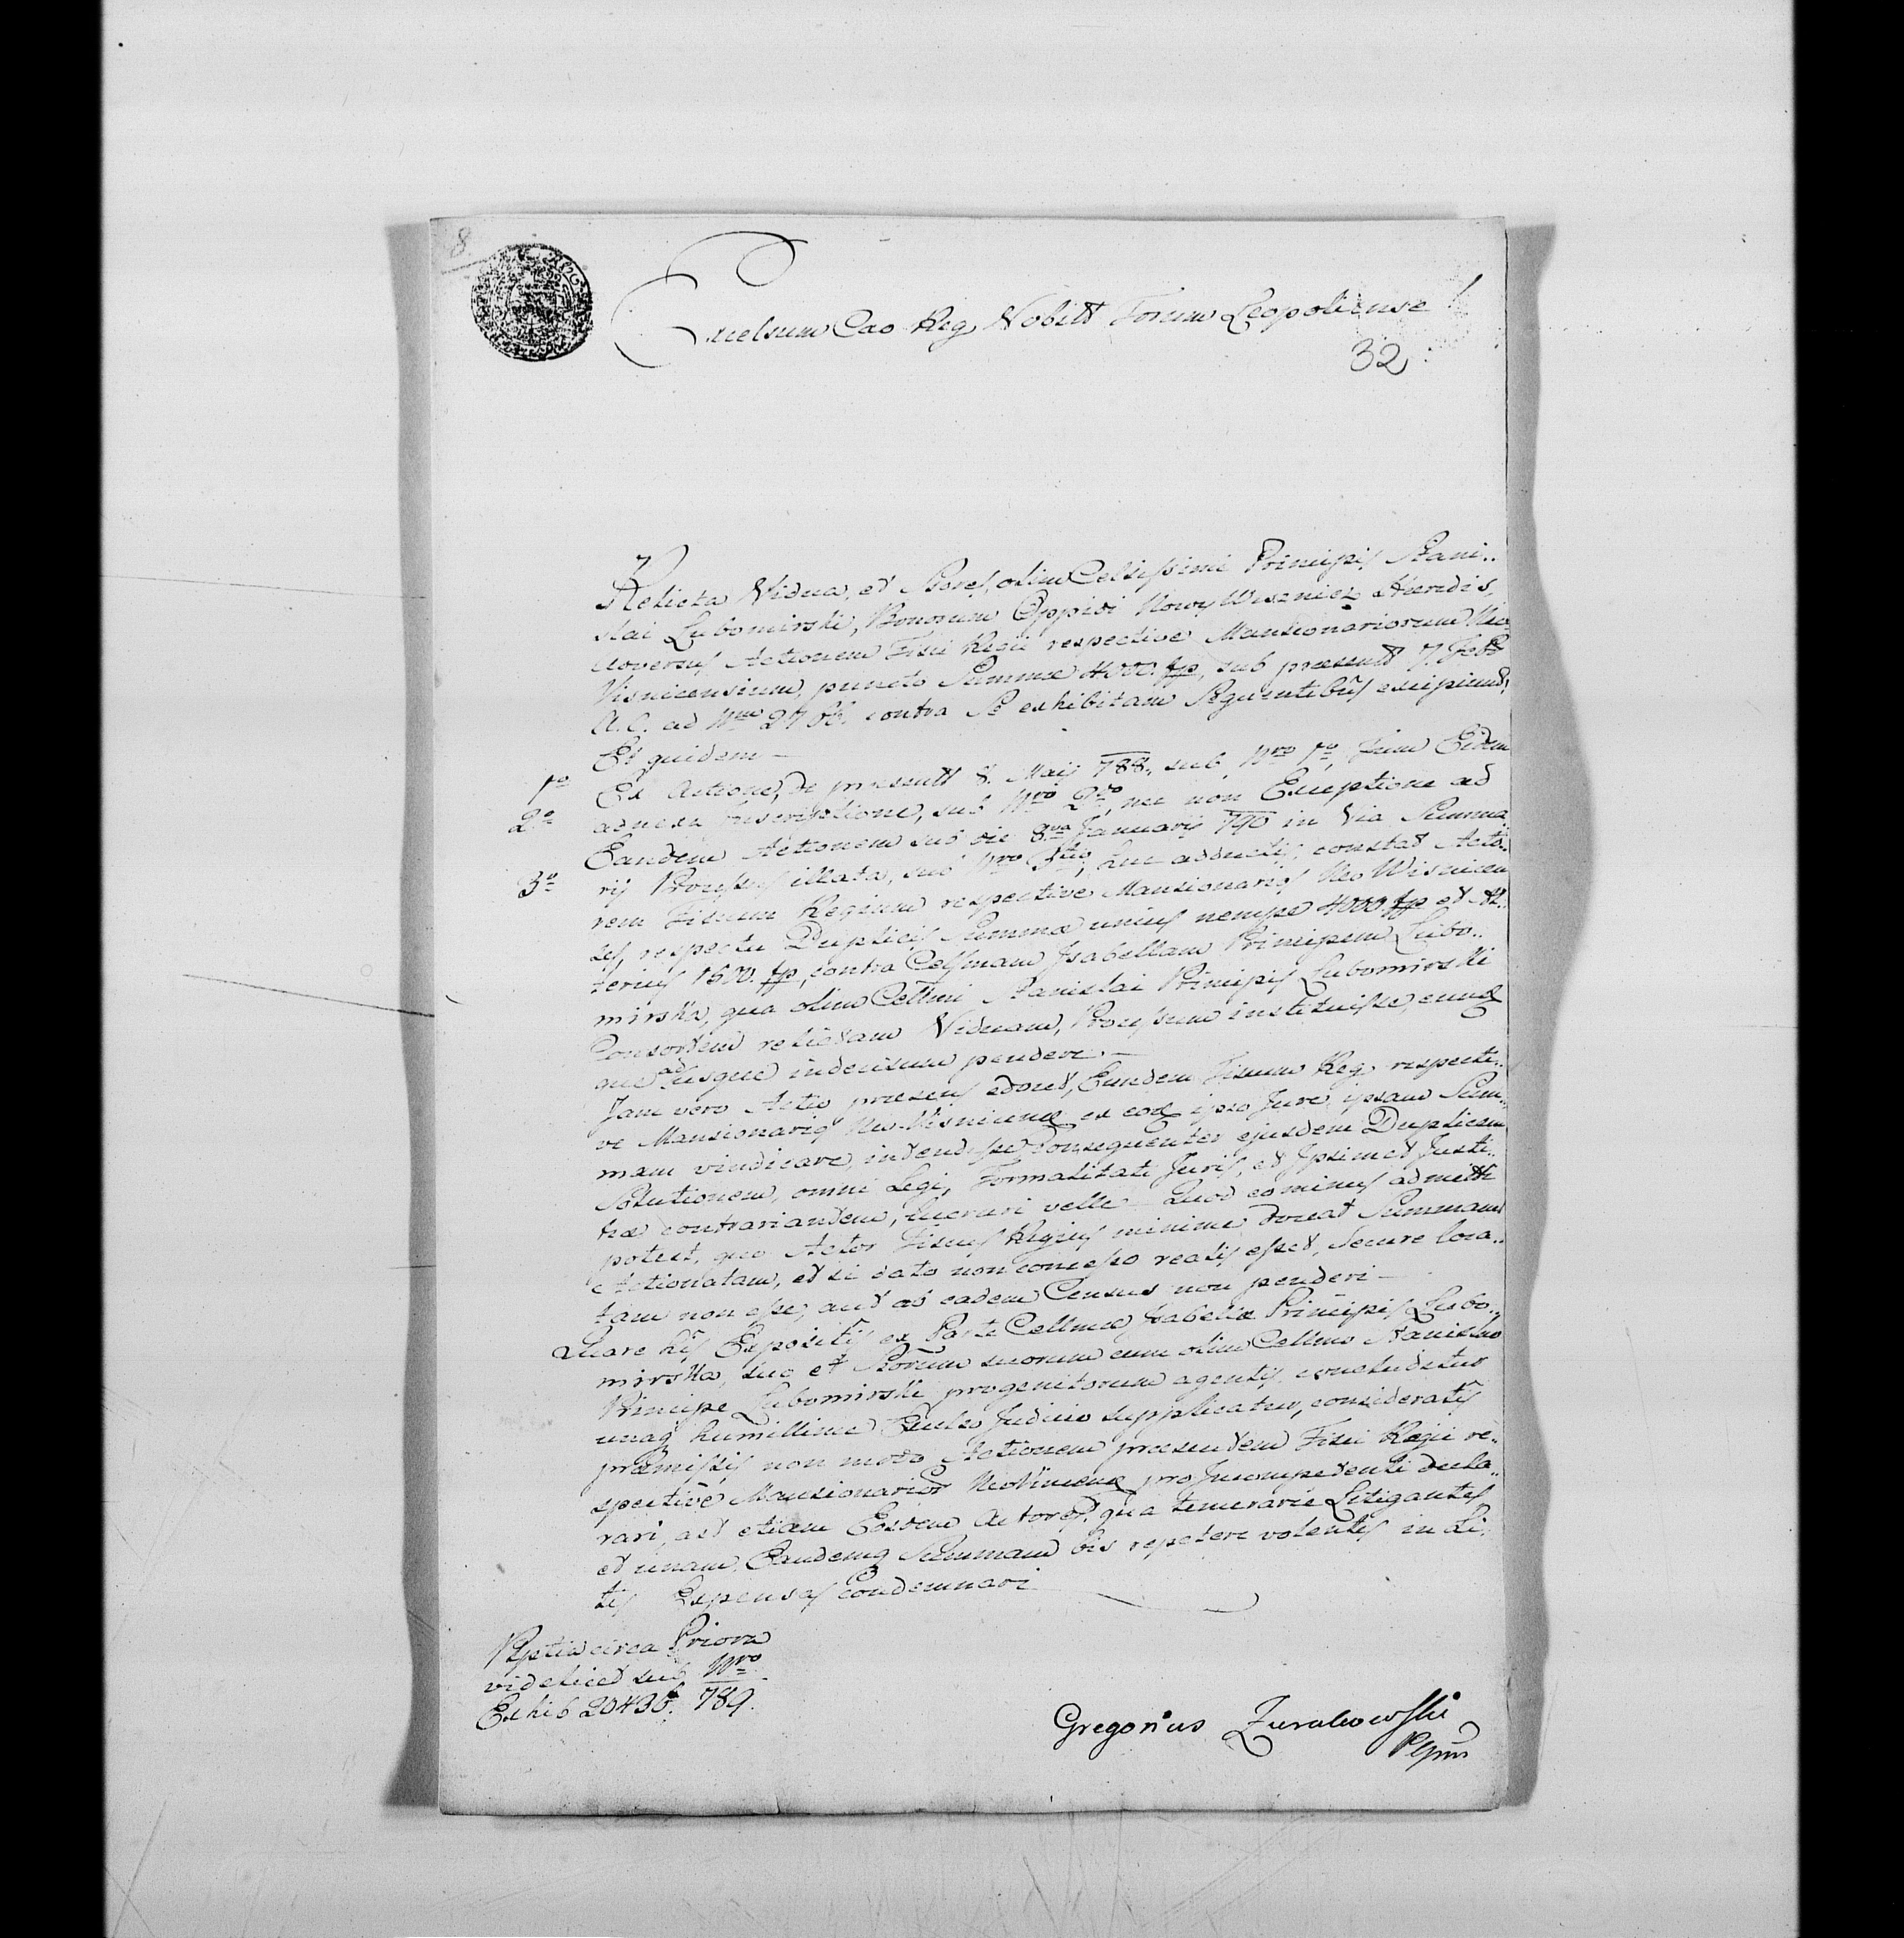 8
Excelsum Cao Reg Nobilt Forum Leopoliense!
32
Relicta Vidua, et Sores, olim Celsissimi Principis Stani..
slai Lubomirski, Bonorum Oppidi Nowy Wisznicz Hæredis,
adversus Actionem Fisci Regii respective Mansionariorum Neo
Visnicensium, puncto Summæ 4000 fp, sub præsentt 7. Febr
A. C. ad Nrm contra Se exhibitam Sequentibus excipiunt,
Et quidem –
1o Ex Actione, de præsentt 8. Maji 788., sub Nro 1o, tum Eidem
2o adnexa Inscriptione, sub Nro 2do, nec non Exceptione ad
Eandem Actionem sub die 8va Januarij 790 in Via Summa
3o rij Processus illata, sub Nro 3tio, huc adductis, constat Acto..
rem Fiscum Regium respective Mansionarios Neo Wisnicen
ses, respectu Duplicis Summæ unius nempe 4000 fp et Al..
terius fp, contra Celsmam Isabellam Principem Lubo..
mirska, qua olim Cellmi Stanislai Principis Lubomirski
Consortem relictam Viduam, Processum instituisse, eumq
nec adusque indecisum pendere. –
Jam vero Actio præsens edocet, Eundem Fiscum Reg. respecti..
ve Mansionarios Neo-Visnicens ex eod ipso Jure ipsam Sum..
mam vindicare, intendisse, Consequenter ejusdem Duplicem
Solutionem, omni Legi, Formalitati Juris, et Ipsimet Justi..
tiæ contrariandem, lucrari velle – Quod eo minus admitti
potest, quo Actor Fiscus Regius minime docuat Summam
Actionatam, et si dato non concesso realis esset, Secure loca..
tam non esse, aut ab eadem Census non penderi –
Quare his Expositis ex Parte Cellmæ Isabellæ Principis Lubo..
mirska, suo et Sorum suorum cum olim Cellmo Stanislao
Principe Lubomirski progenitorum agentis, concluditur
unaq humillime Excelso Judicio supplicatur, consideratis
præmissis non modo Actionem præsentem Fisci Regii re..
spective Mansionarior Neovisnicens pro Incompetenti decla..
rari, ast etiam Eosdem Actores, qua temerarie Litigantes
et unam, Eandemq Summam bis repetere volentes in Li..
tis Expensas Condemnari
Rptia circa Priora
videlicet sub Nro
Exhib 20436. 789.
Gregorius Zurakowski